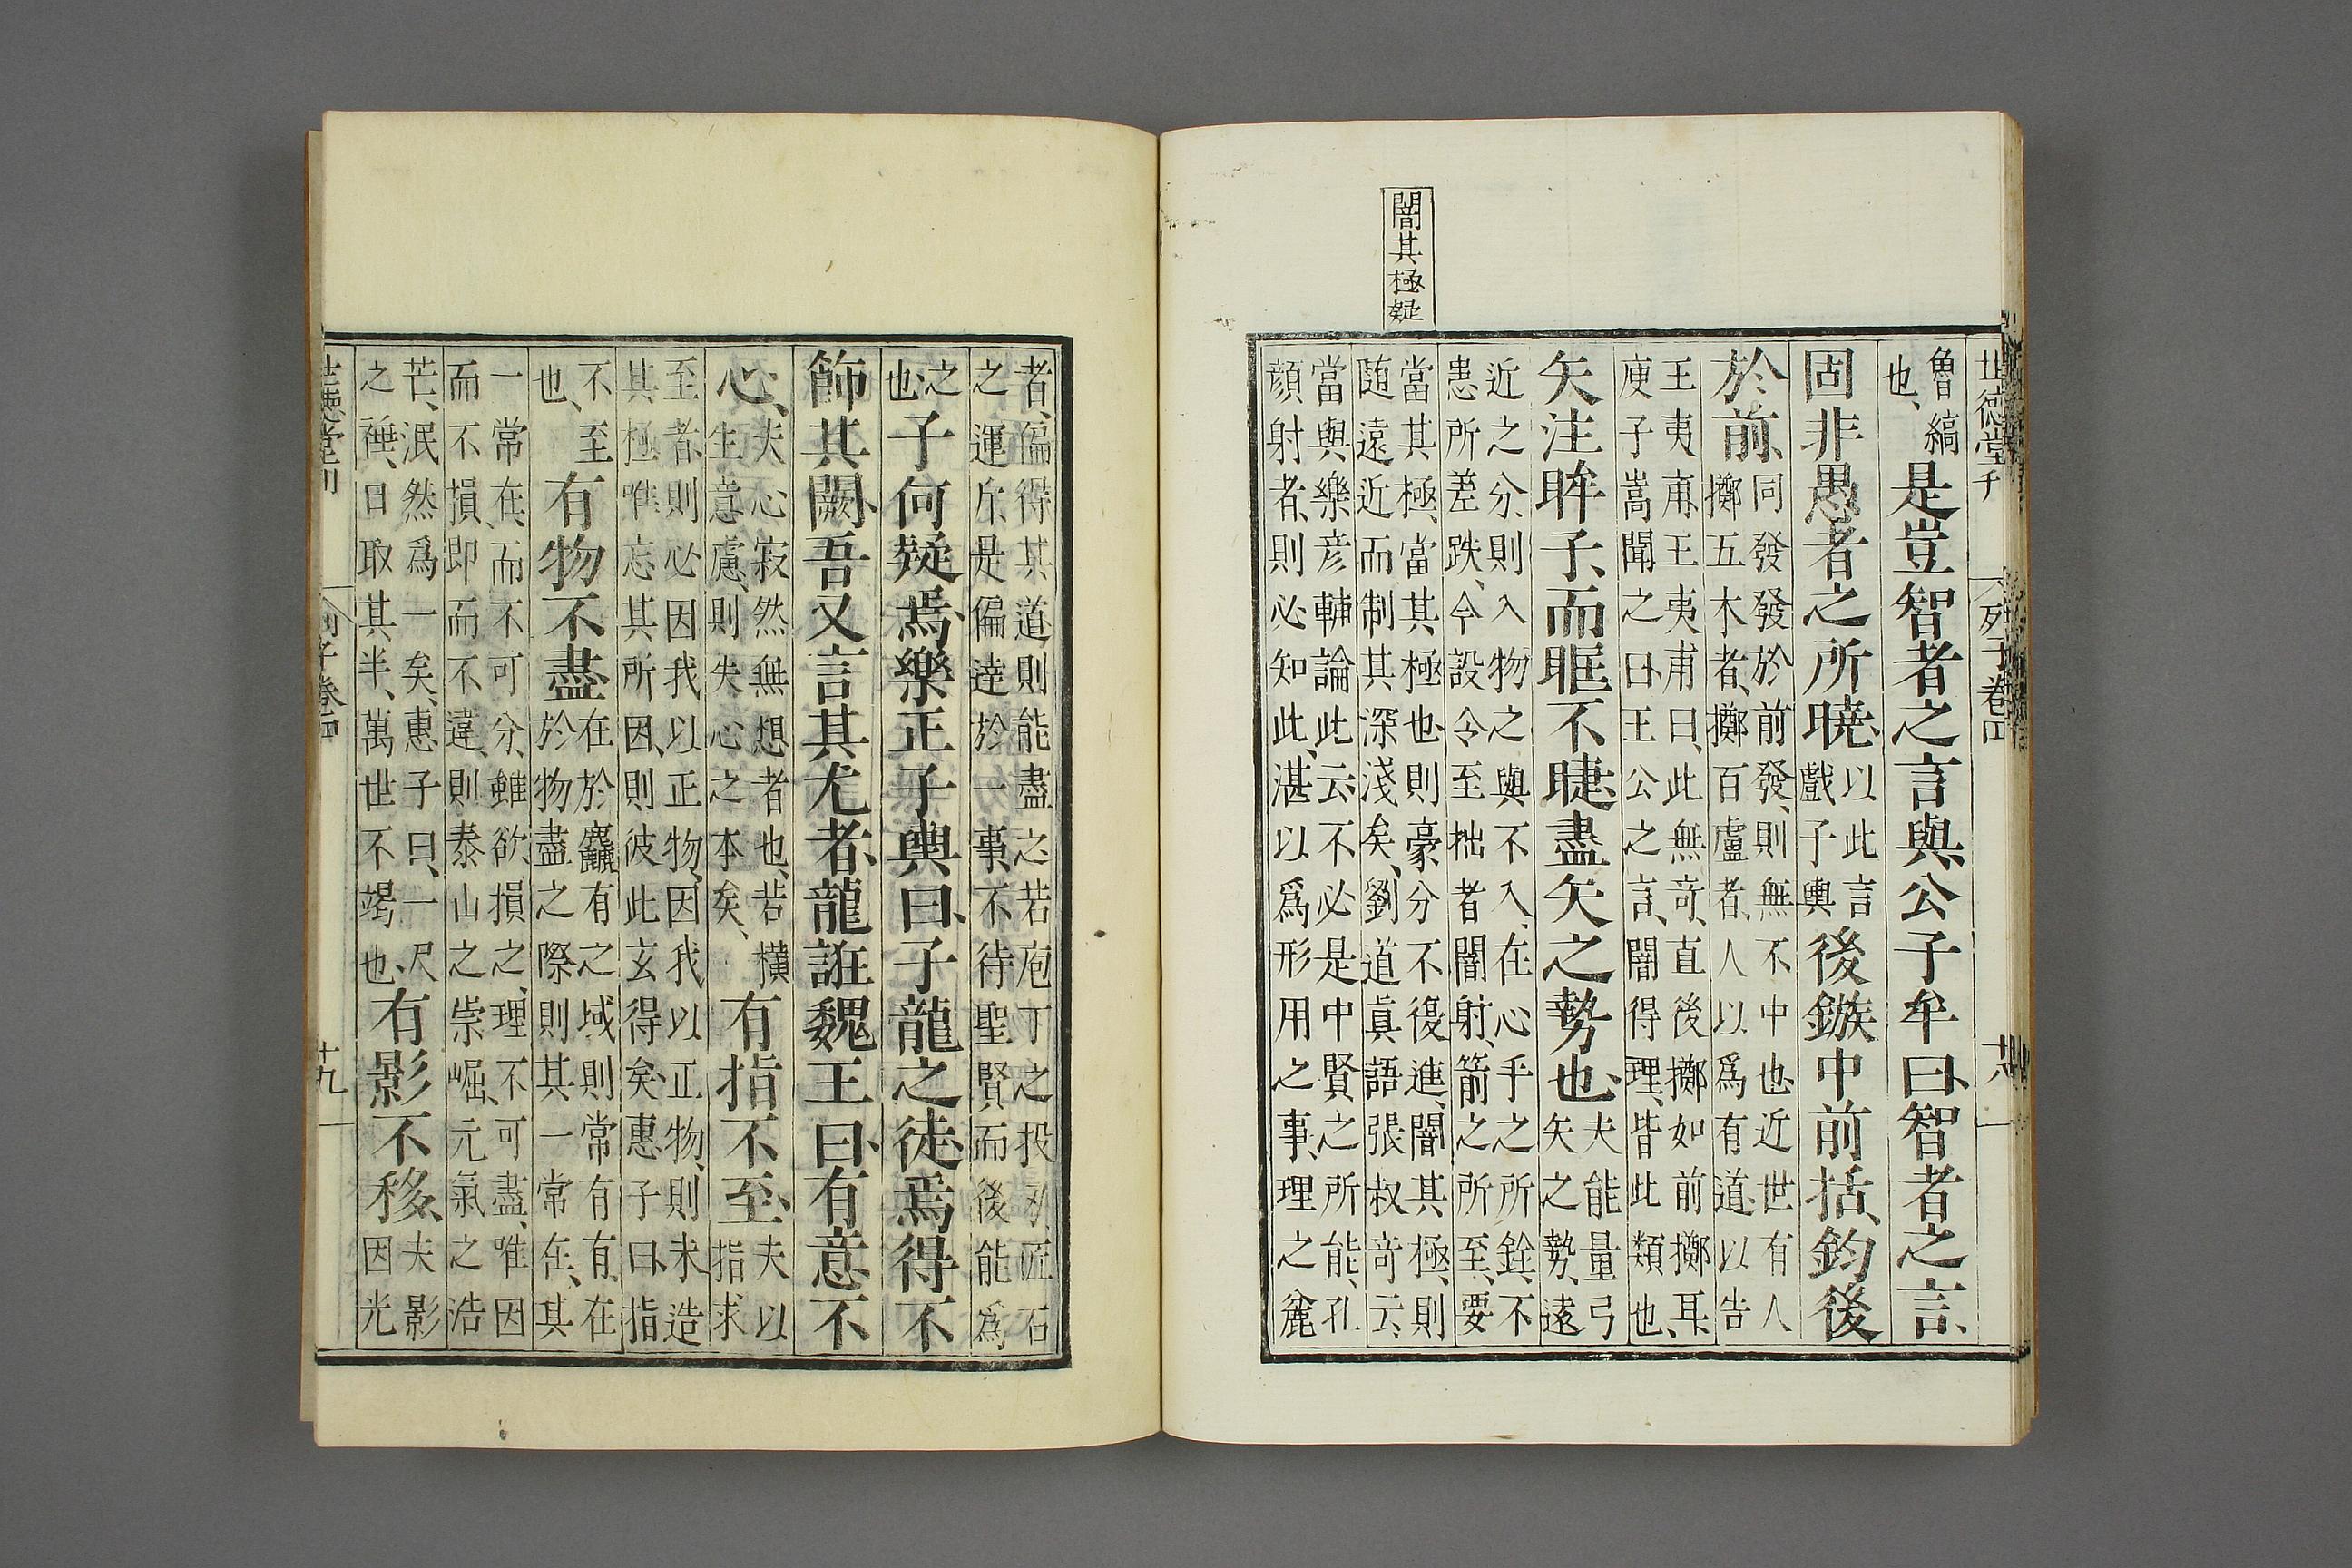 世德堂刊 列子卷四 十八
魯縞
也、
是豈智者之言與公子牟曰、智者之言、
固非愚者之所曉、
以此言
戲子輿
後鏃中前括、鈞後
於前、
同發發於前發、則無不中也近世有人
擲五木者、擲百盧者、人以爲有道以告
王夷甫王夷甫曰、此無奇、直後擲如前擲耳、
庾子嵩聞之曰王公之言、闇得理、皆此類也、
矢注眸子、而眶不睫、盡矢之勢也、
夫能量弓
矢之勢、遠
近之分、則入物之與不入、在心手之所銓、不
患所差跌、今設令至拙者闇射、箭之所至、要
闇其極疑
當其極、當其極也則豪分不復進、闇其極、則
隨遠近而制其深淺矣、劉道眞語張叔奇云、
當與樂彦輔論此云不必是中賢之所能、孔
顔射者、則必知此、湛以爲形用之事、理之麄
者、偏得其道則能盡之若庖丁之投刃、匠石
之運斤、是偏達於一事、不待聖賢而後能爲
之
也
子何疑焉、樂正子輿曰、子龍之徒、焉得不
飾其闕、吾又言其尤者、龍誑魏王曰、有意不
心、
夫心寂然無想者也、若橫
生意慮、則失心之本矣、
有指不至、
夫以
指求
至者、則必因我以正物、因我以正物、則未造
其極唯忘其所因、則彼此玄得矣、惠子曰、指
不至
也、
有物不盡
在於麤有之域則常有有、在
於物盡之際則其一常在、其
一常在、而不可分、雖欲損之、理不可盡、唯因
而不損、即而不違、則泰山之崇崛、元氣之浩
芒、泯然爲一矣、惠子曰、一尺
之棰、日取其半、萬世不竭也、
有影不移、
夫影
因光
世德堂刊 列子卷四 十九